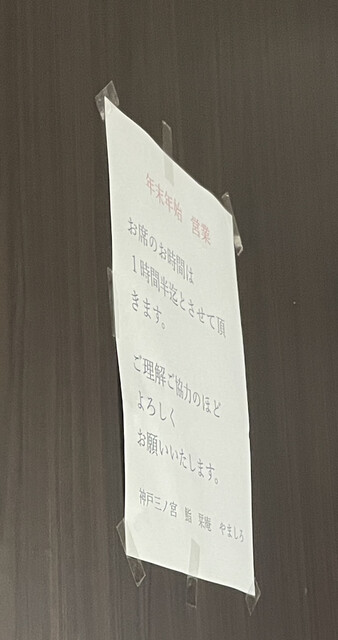 年末年始 営業
お席のお時間は
1時間半迄とさせて頂
きます。
ご理解ご協力のほど
よろしく
お願いいたします。
神戸三ノ宮 鮨 栞庵 やましろ